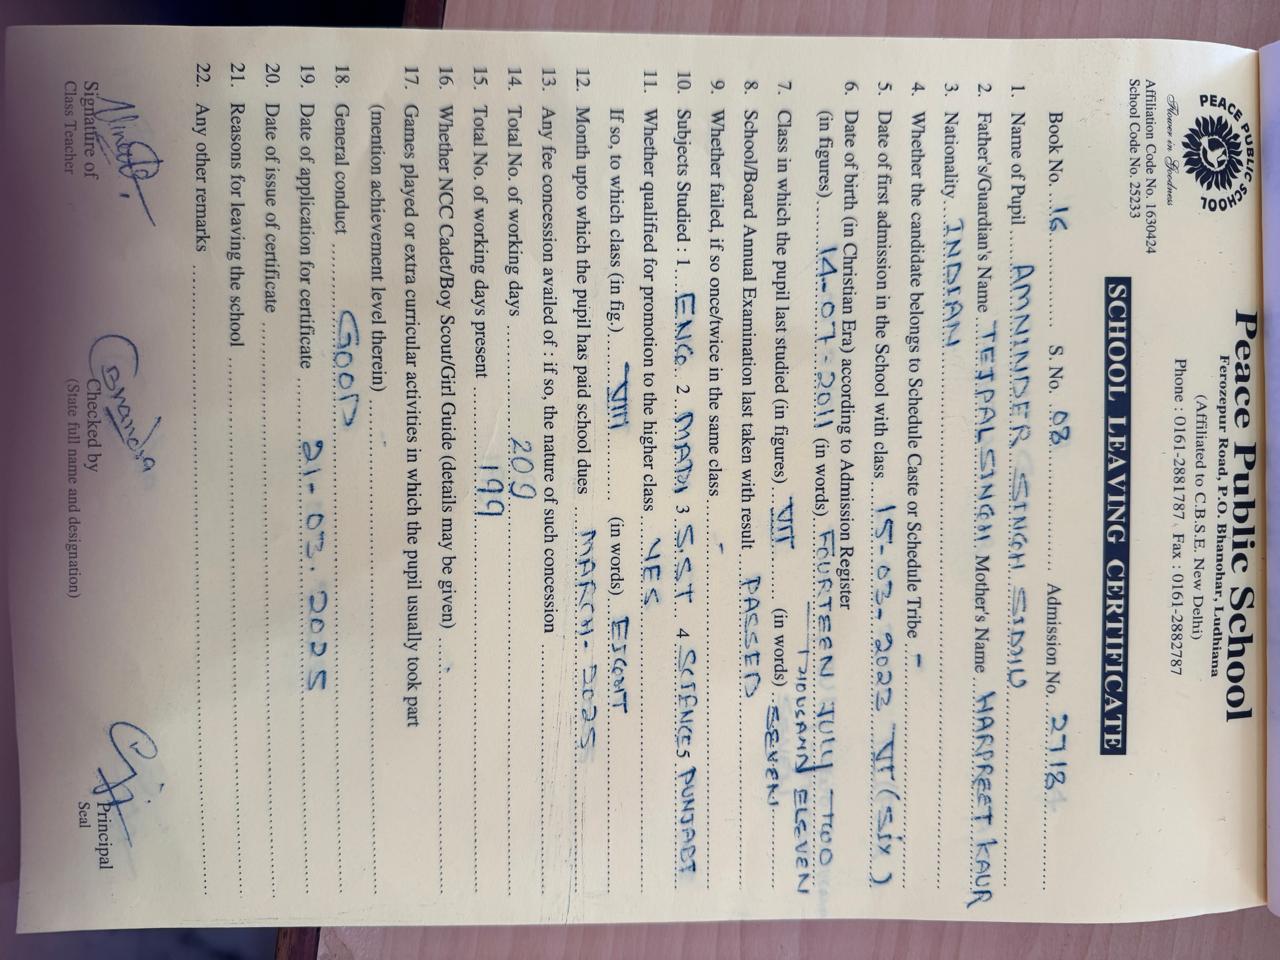 PEACE PUBLIC SCHOOL
Flower in Goodness
Affiliation Code No. 1630424
School Code No. 25233
Peace Public School
Ferozepur Road, P.O. Bhanohar, Ludhiana
(Affiliated to C.B.S.E. New Delhi)
Phone : 0161-2881787, Fax : 0161-2882787
SCHOOL LEAVING CERTIFICATE
Book No. 16 S No. 08 Admission No. 2718
1. Name of Pupil AMNINDER SINGH SIDHU
2. Father's/Guardian's Name TEJPAL SINGH Mother's Name HARPREET KAUR
3. Nationality INDIAN
4. Whether the candidate belongs to Schedule Caste or Schedule Tribe -
5. Date of first admission in the School with class 15-03-2022 VI (Six)
6. Date of birth (in Christian Era) according to Admission Register
(in figures) 14-07-2011 (in words) FOURTEEN JULY TWO
THOUSAND ELEVEN
7. Class in which the pupil last studied (in figures) VII (in words) SEVEN
8. School/Board Annual Examination last taken with result PASSED
9. Whether failed, if so once/twice in the same class -
10. Subjects Studied : 1 ENG 2 MATH 3 S.ST 4 SCIENCE 5 PUNJABI
11. Whether qualified for promotion to the higher class YES
If so, to which class (in fig.) VIII (in words) EIGHT
12. Month upto which the pupil has paid school dues MARCH-2025
13. Any fee concession availed of : if so, the nature of such concession
14. Total No. of working days 209
15. Total No. of working days present 199
16. Whether NCC Cadet/Boy Scout/Girl Guide (details may be given)
17. Games played or extra curricular activities in which the pupil usually took part
(mention achievement level therein) -
18. General conduct GOOD
19. Date of application for certificate 21-03-2025
20. Date of issue of certificate
21. Reasons for leaving the school
22. Any other remarks
Signature of
Class Teacher
Checked by
(State full name and designation)
Principal
Seal